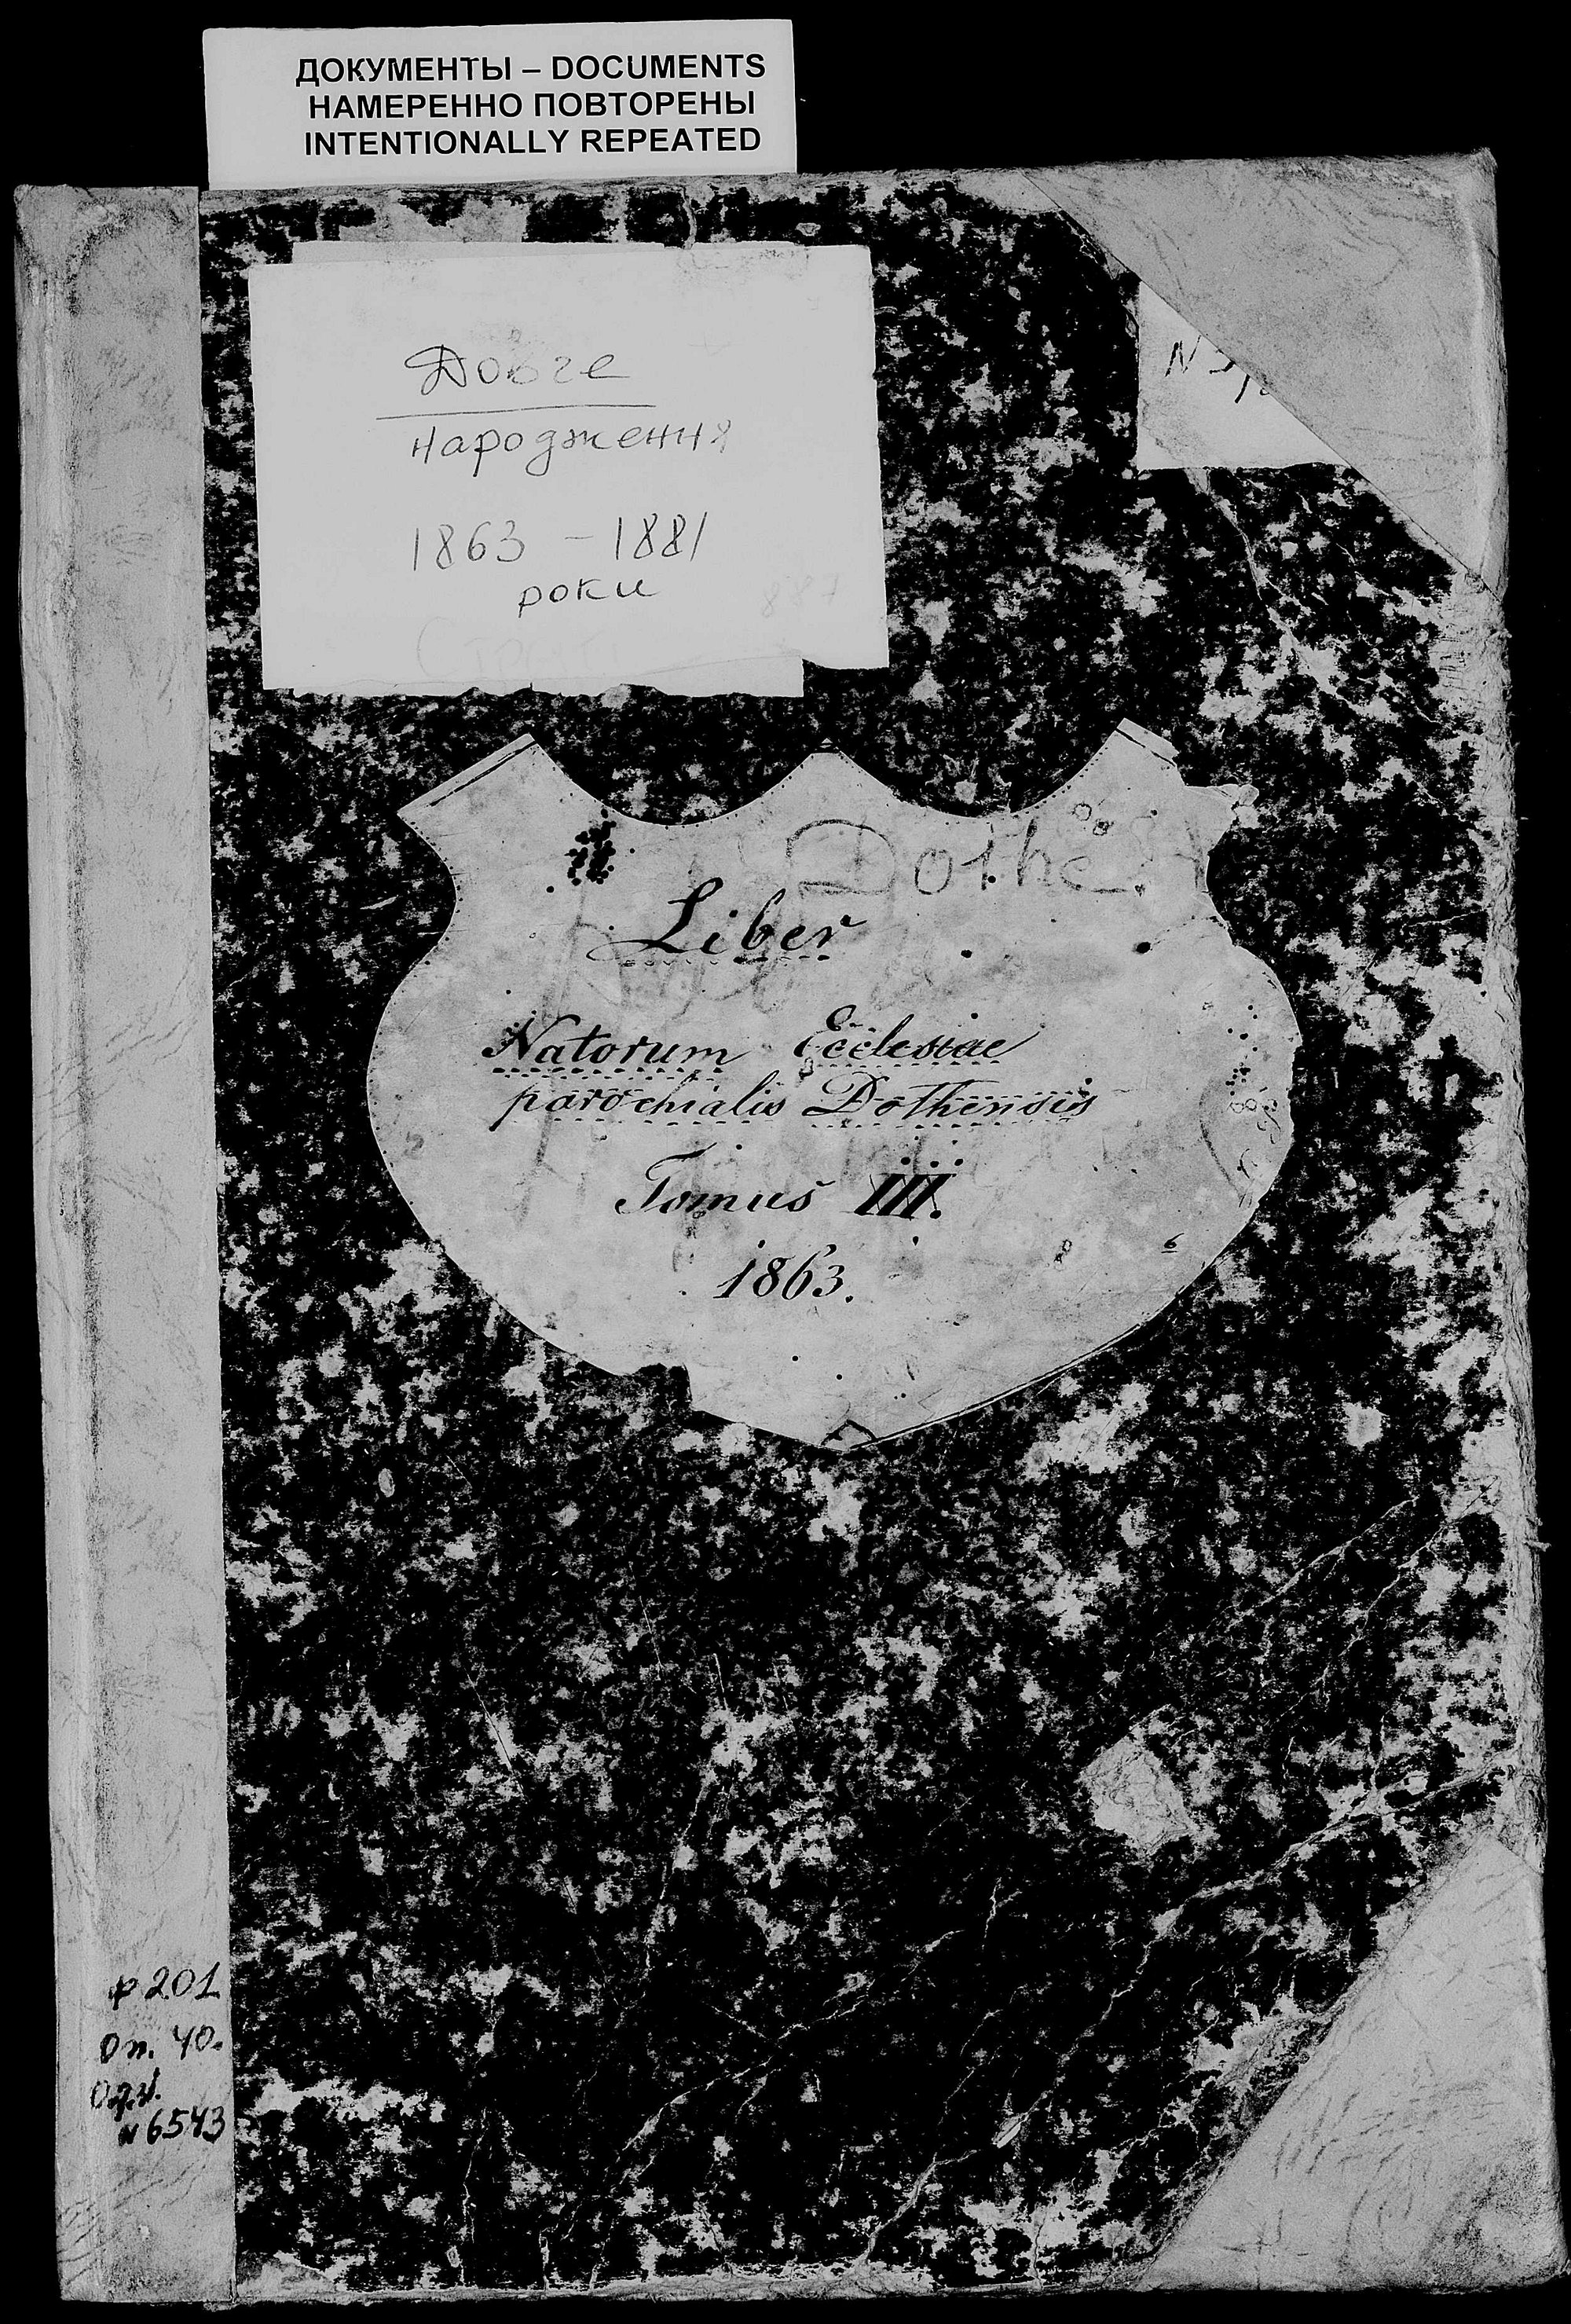 ДОКУМЕНТЫ – DOCUMENTS
НАМЕРЕННО ПОВТОРЕНЫ
INTENTIONALLY REPEATED
Довге
народження
1863 – 1881
роки
887
N
Dolhe
Liber
Natorum Ecclesiae
parochialis Dolhensis
Tomus III.
1863.
6
ф 201
Оп. 40.
N 6543